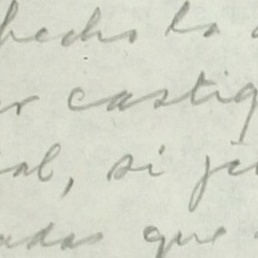 hecho la
r castig
al, si je
adas que